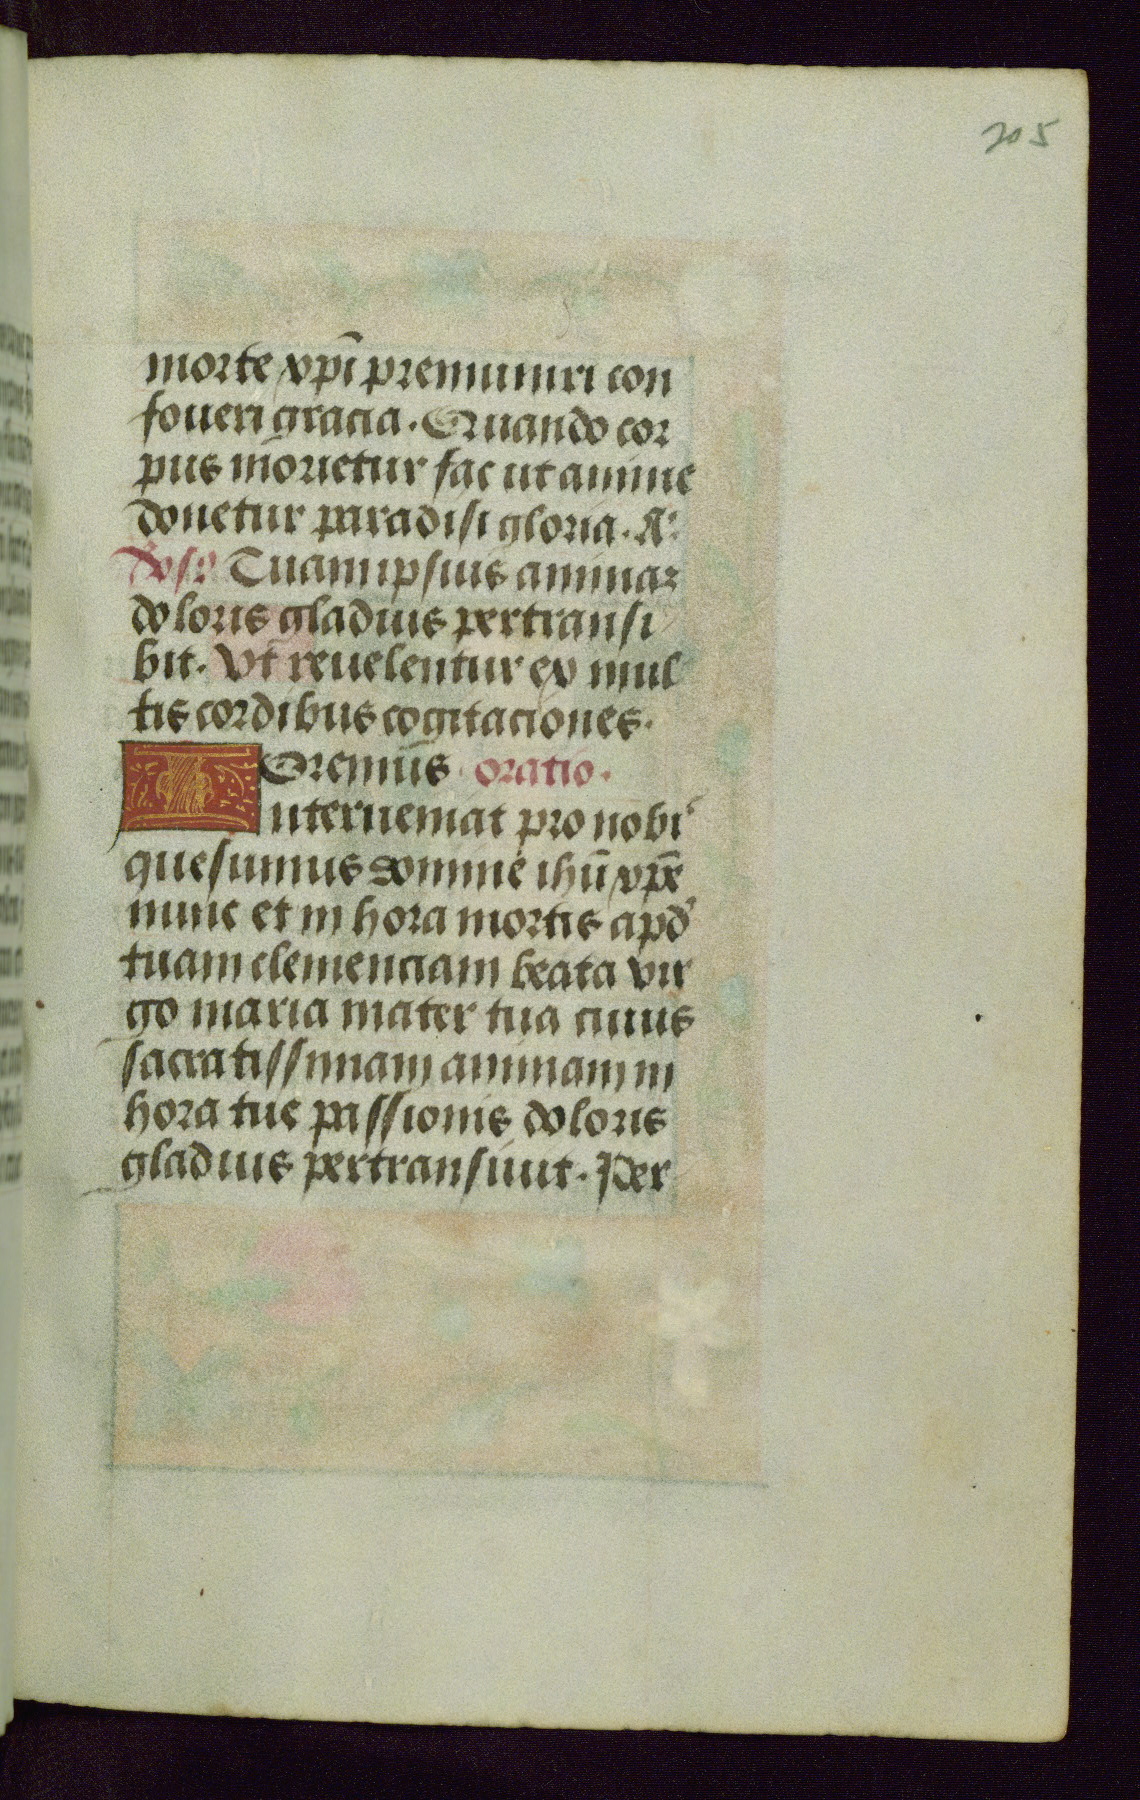 205
morte xp̄i premuniri con
foueri gracia. Quando cor
pus morietur fac ut anime
donetur paradisi gloria. A:
Tuam ipsius animaz
doloris gladius pertransi
bit. Vt reuelentur ex mul
tis cordibus cogitaciones.
Oremus oratio.
Interueniat pro nobi
quesumus domine ihū xp̄e
nunc et in hora mortis apd
tuam clemenciam beata vir
go maria mater tua cuius
sacratissimam animam in
hora tue passionis doloris
gladius pertransiuit. Per